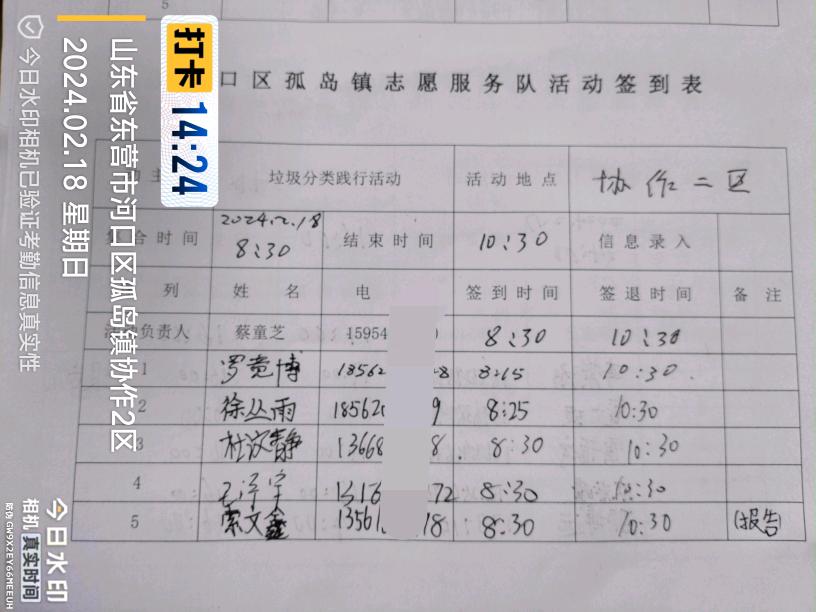 5
口区孤岛镇志愿服务队活动签到表
主 垃圾分类践行活动 活动地点 协作二区
合时间 2024.2.18 8:30 结束时间 10:30 信息录入
列 姓名 电 签到时间 签退时间 备注
负责人 蔡童芝 15954 8:30 10:30
1 罗竟博 18562 8 8:15 10:30.
2 徐丛雨 18562 9 8:25 10:30
3 杜汶静 13668 8. 8:30 10:30
4 宇 72 8:30 10:30
5 索文鑫 13561 18 8:30 10:30 (报告)
打卡 14:24
山东省东营市河口区孤岛镇协作2区
2024.02.18 星期日
今日水印相机已验证考勤信息真实性
今日水印
相机 真实时间
防伪 GW9X2EY66MEEUH